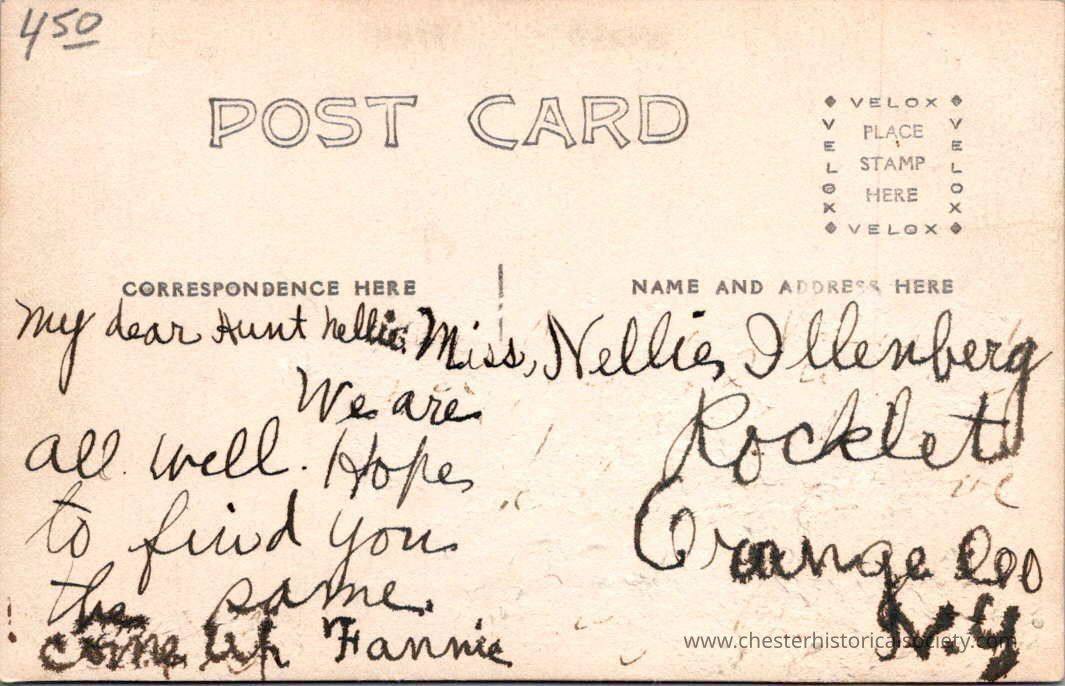 450
POST CARD
VELOX
VELOX
PLACE
STAMP
HERE
VELOX
VELOX
CORRESPONDENCE HERE
NAME AND ADDRESS HERE
My dear Aunt Nellie.
We are
all well. Hope
to find you
the same.
come up Fannie
Miss, Nellie Illenberg
Rocklet
Orange Coo
NY
www.chesterhistoricalsociety.com